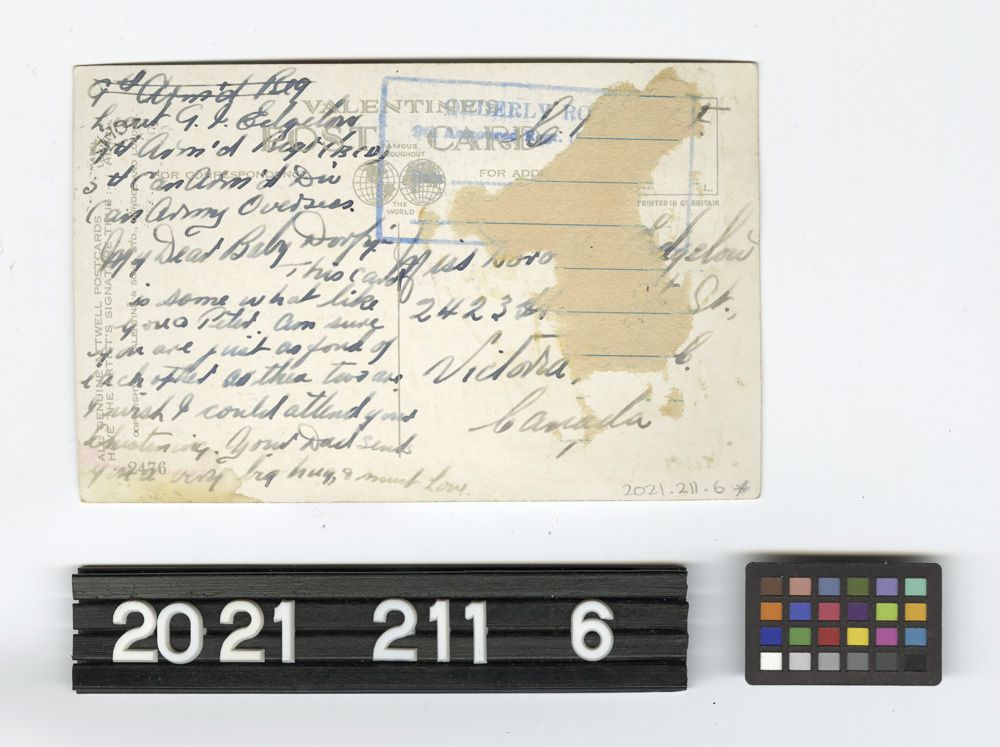 9th Arm'd Reg
Lieut G. I. Edgelow
9th Arm'd Regt (BCD)
5th Can Arm'd Div
Can Army Overseas.
My Dear Baby Dorfy
This card
is some what like
you & Peter. Am sure
you are just as fond of
each other as thea two are
I wish I could attend your
Christening. Your Dad sends
you a very big hug, & much love.
VALENTINE'S
POST CARD
FAMOUS
THROUGHOUT
THE
WORLD
FOR CORRESPONDENCE
FOR ADD
PRINTED IN GT BRITAIN
ORDERLY RO
9th Armoured Regt.
Miss Doro Edgelow
2423 St.,
Victoria,
Canada
ALL GENUINE ATTWELL POSTCARDS
HAVE THE ARTIST'S SIGNATURE THUS
COPYRIGHT VALENTINE & SONS LTD., DUNDEE AND LONDON
2476
2021.211.6
2021 211 6